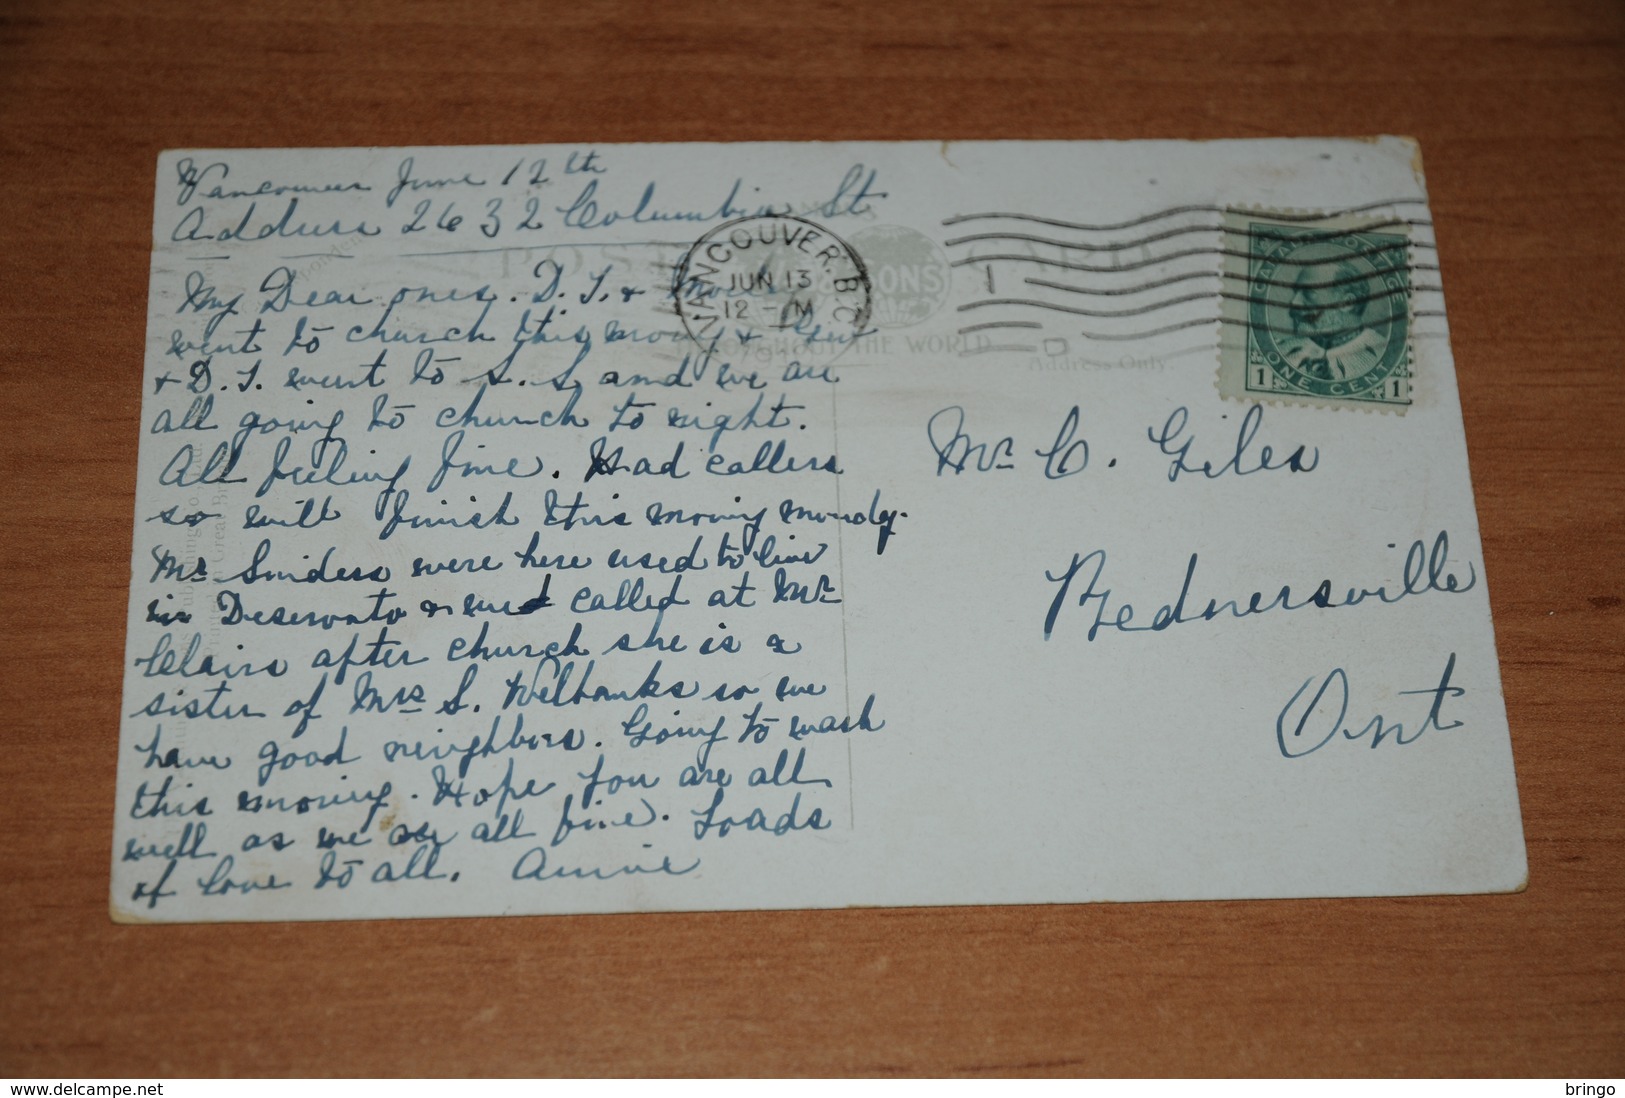 Vancouver June 12th
Address 2632 Columbia St
My Dear ones. D. J. &
went to church this morng &
& D. J. went to S. S, and we are
all going to church to night.
All feeling fine. Had callers
so will finish this morning monday.
Mr Sniders were here used to live
in Deseronto & called at Mr
Clairs after church she is a
sister of Mrs S. Welbanks so we
have good neighbors. Going to wash
this morning. Hope you are all
well as we are all fine. Loads
of love to all. Annie
POST CARD
VANCOUVER. B.C.
JUN 13
12 - M
& SONS
THROUGHOUT THE WORLD
Address Only.
CANADA POSTAGE
1 ONE CENT 1
Mr C. Giles
Rednersville
Ont
delcampe.net
bringo